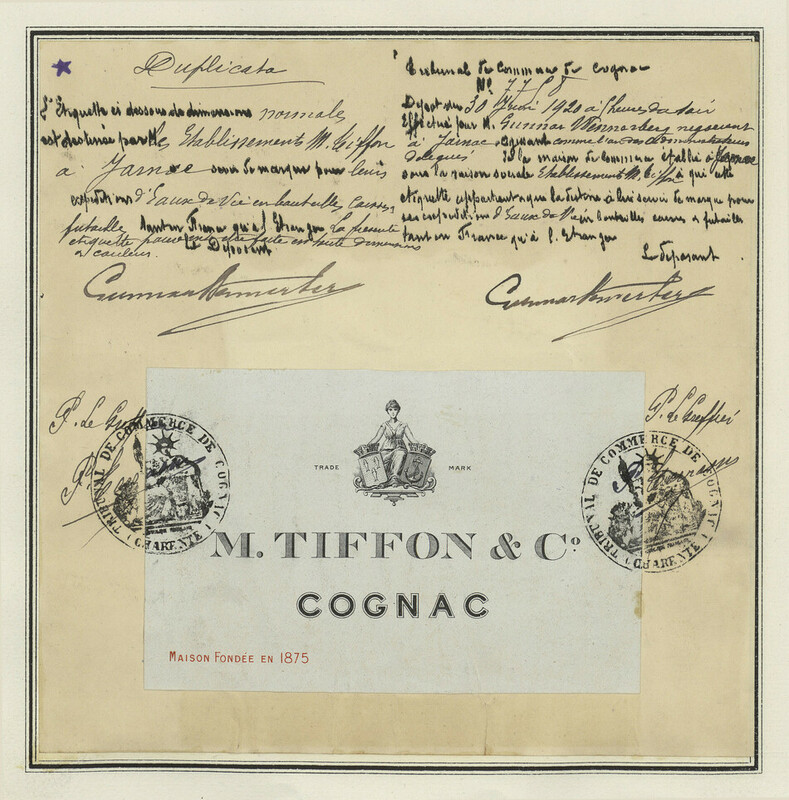 Duplicata
L'Etiquette ci dessous de dimensions normale
est destinée par les Etablissements M. Tiffon
à Jarnac servir de marque pour leurs
expéditions d'Eaux de Vie en bouteilles, caisses,
futailles tant en France qu'à l'Etranger La présente
étiquette pouvant être faite en toute dimensions
et couleur.
Le Déposant
Gunnar Wennerberg
Tribunal de Commerce de Cognac
No 7758
Dépot du 30 1920 à heures du soir
Effectué par M. Gunnar Wennerberg négociant
à Jarnac, agissant comme l'un des administrateurs
délégués de la maison de Commerce établie à Jarnac
sous la raison sociale Etablissements M. Tiffon à qui cette
étiquette appartient et qui la destine à lui servir de marque pour
ses expéditions d'Eaux de Vie en bouteilles caisses et futailles
tant en France qu'à l'Etranger
Le déposant
Gunnar Wennerberg
P. le Greffier
P. le Greffier
TRIBUNAL DE COMMERCE DE COGNAC (CHARENTE)
TRIBUNAL DE COMMERCE DE COGNAC (CHARENTE)
TRADE MARK
M. TIFFON & Co.
COGNAC
MAISON FONDÉE EN 1875